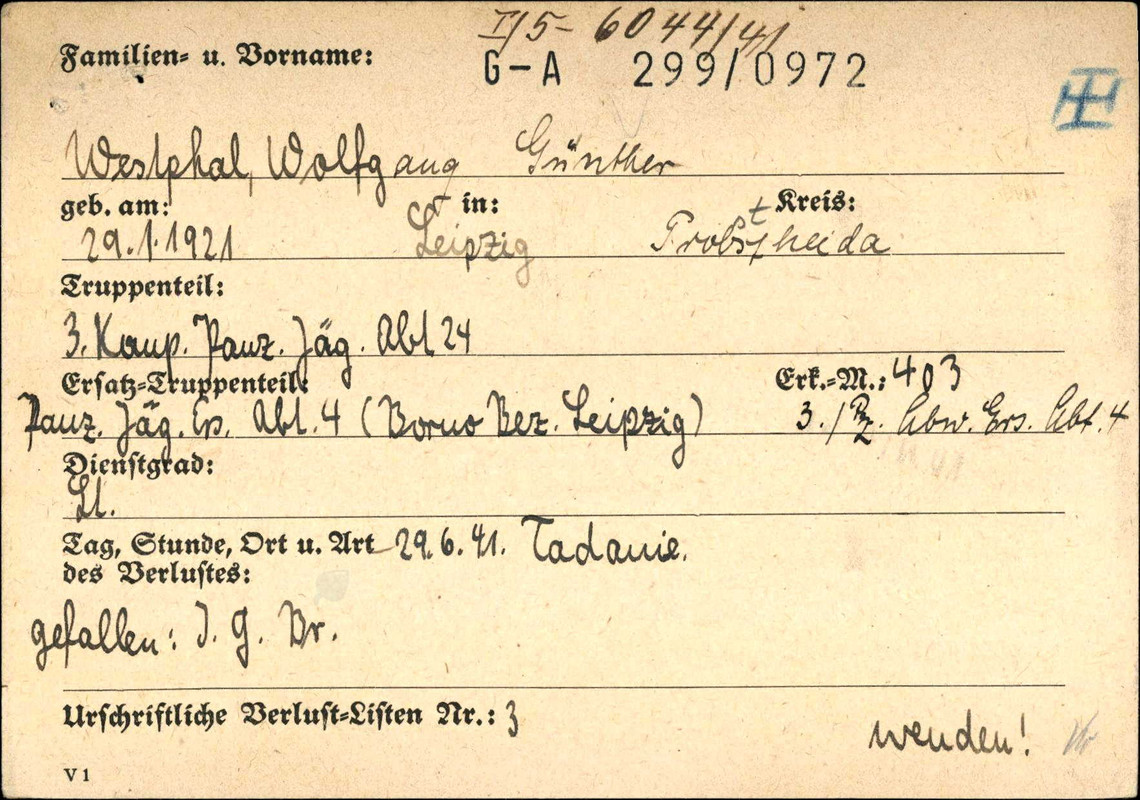 I/5- 6044/41
Familien- u. Vorname:
G-A 299/0972
Westphal, Wolfgang Günther
geb. am: in: Kreis:
29.1.1921 Leipzig Probstheida
Truppenteil:
3. Komp. Panz. Jäg. Abt 24
Ersatz-Truppenteil: Erk.-M.: 403
Panz. Jäg. Ers. Abt. 4 (Borna Bez. Leipzig) 3./Pz. Abw. Ers. Abt. 4
Dienstgrad:
Lt.
Tag, Stunde, Ort u. Art 29.6.41. Tadanie.
des Verlustes:
gefallen: I. G. Br.
Urschriftliche Verlust-Listen Nr.: 3
wenden!
V 1